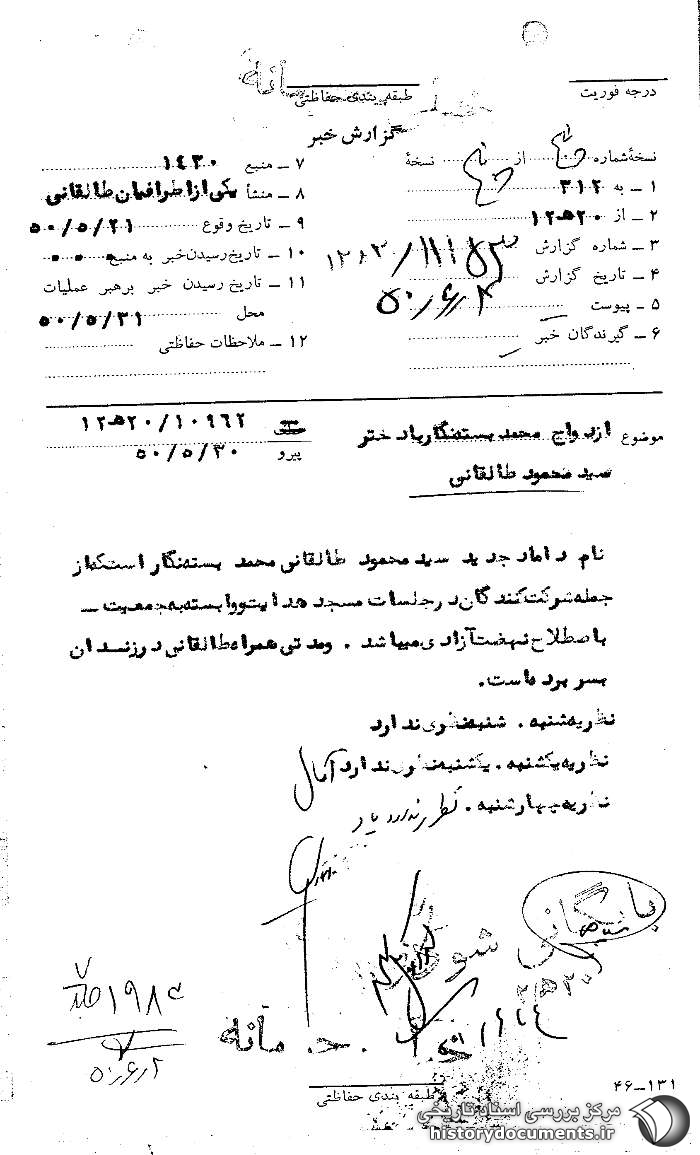 درجه فوریت
طبقه بندی حفاظتی
گزارش خبر
نسخهٔ شماره از نسخهٔ
۱ ـ به ۳۱۲
۲ ـ از ۲۰ ه‍ ۱۲
۳ ـ شماره گزارش
۴ ـ تاریخ گزارش
۵ ـ پیوست
۶ ـ گیرندگان خبر
۷ ـ منبع ۱۴۳۰
۸ ـ منشأ یکی از اطرافیان طالقانی
۹ ـ تاریخ وقوع ۵۰/۵/۲۱
۱۰ ـ تاریخ رسیدن خبر به منبع
۱۱ ـ تاریخ رسیدن خبر برهبر عملیات
محل ۵۰/۵/۳۱
۱۲ ـ ملاحظات حفاظتی
موضوع ازدواج محمد بسته‌نگار با دختر
سید محمود طالقانی
۲۰/۱۰۹۶۲ ه‍ ۱۲
پیرو ۵۰/۵/۳۰
نام داماد جدید سید محمود طالقانی محمد بسته‌نگار است که از
جمله شرکت کنندگان در جلسات مسجد هدایت و وابسته به جمعیت ـ
باصطلاح نهضت آزادی میباشد . ومدتی همراه طالقانی در زندان
بسر برده است.
نظریه شنبه . شنبه نظری ندارد
نظریه یکشنبه . یکشنبه نظری ندارد آمال
نظریه چهارشنبه . نظری ندارد
بایگانی شود
۵۰/۶/۲
طبقه بندی حفاظتی
۴۶ـ۱۳۱
مرکز بررسی اسناد تاریخی
historydocuments.ir